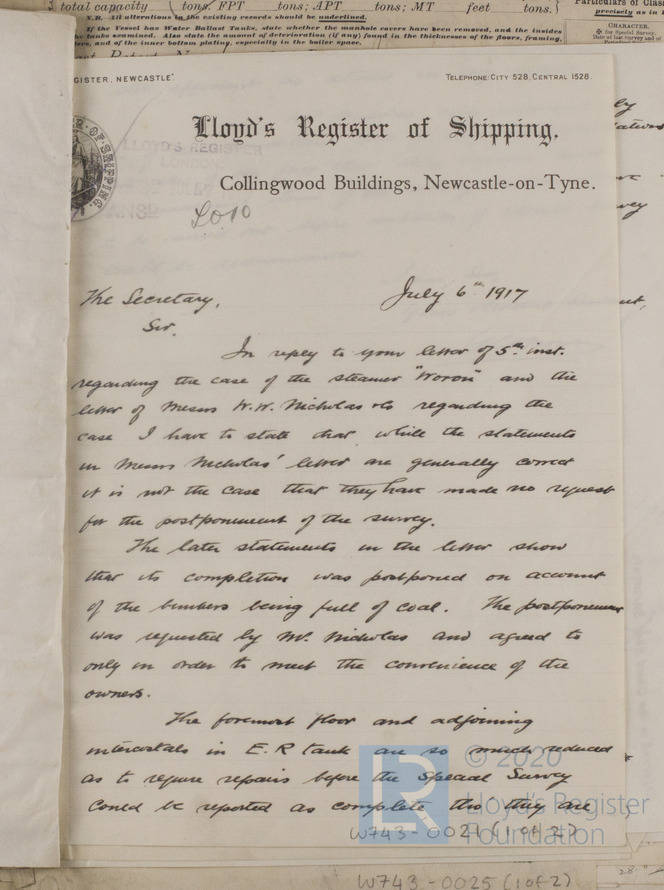 total capacity tons. FPT tons; APT tons; MT feet tons.}
N.B. All alterations in the existing records should be underlined.
If the Vessel has Water Ballast Tanks, state whether the manhole covers have been removed, and the insides
the tanks examined. Also state the amount of deterioration (if any) found in the thicknesses of the floors, framing,
and of the inner bottom plating, especially in the boiler space.
Particulars of Clas
precisely as in
CHARACTER.
for Special Survey.
GISTER, NEWCASTLE'
TELEPHONE: CITY 528, CENTRAL 1528.
Lloyd's Register of Shipping.
LLOYD'S REGISTER
Collingwood Buildings, Newcastle-on-Tyne.
The Secretary,
July 6th 1917
Sir.
In reply to your letter of 5th inst.
regarding the case of the steamer "Woron" and the
letter of Messrs W.W. Nicholas & Co regarding the
case I have to state that while the statements
in Messrs Nicholas' letter are generally correct
it is not the case that they have made no request
for the postponement of the survey.
The later statements in the letter show
that its completion was postponed on account
of the bunkers being full of coal. The postponement
was requested by Mr. Nicholas and agreed to
only in order to meet the convenience of the
owners.
The foremost floor and adjoining
intercostals in E.R tank are so much reduced
as to require repairs before the Special Survey
could be reported as complete tho' they are
LR
© 2020
Lloyd's Register
Foundation
W743-0021 (1 of 2)
W743-0025 (1 of 2)